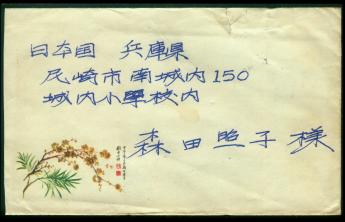 日本国 兵庫県
尼崎市南城内150
城内小學校内
森田照子様